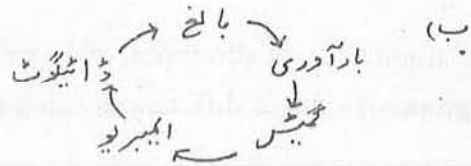 ب)
بالغ
بارآوری
گمیٹس
ایمبریو
ذائیگوٹ